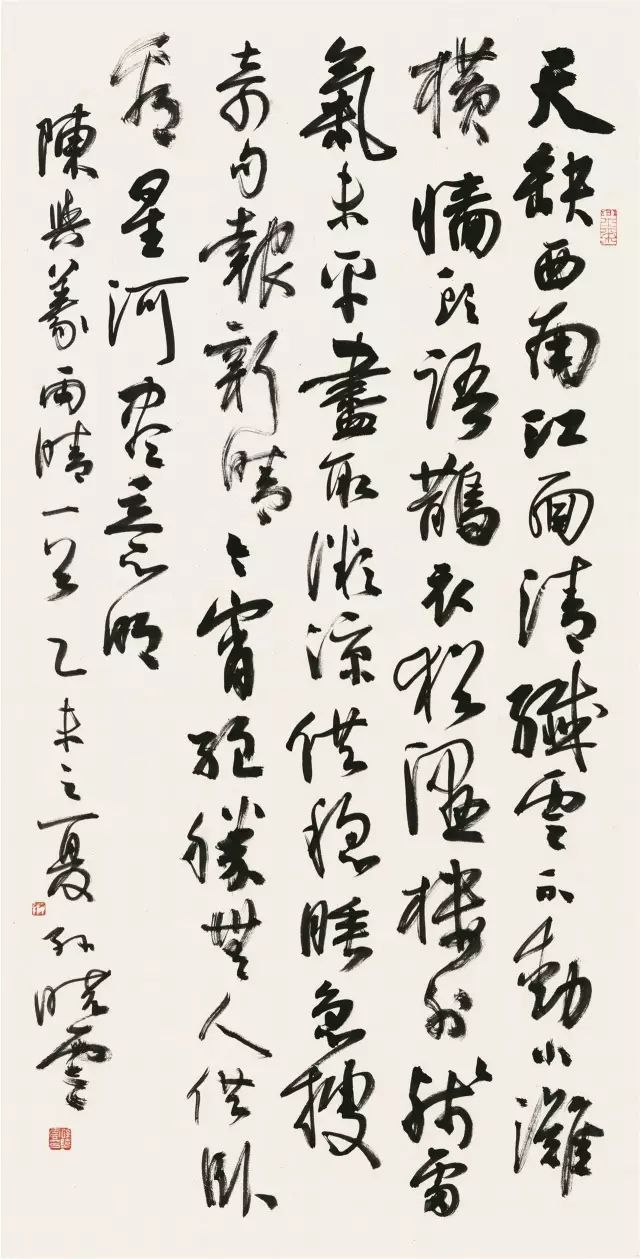 天缺西南江面清纖雲不動小灘
橫牆頭語鵲衣猶溼樓外殘雷
氣未平盡取微涼供穩睡急搜
奇句報新晴今宵絕勝無人供卧
看星河盡意明
陳與義雨晴一首 乙未之夏 孫曉雲